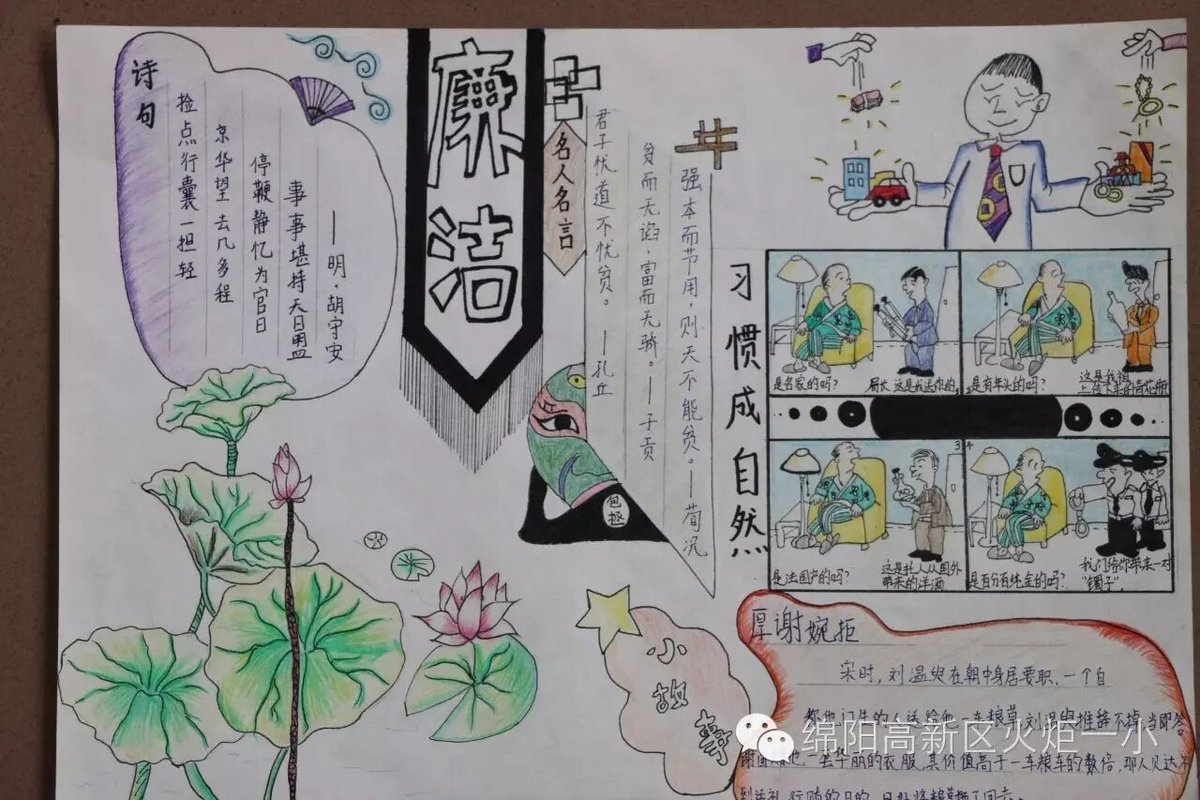 诗句
捡点行囊一担轻
京华望去几多程
停鞭静忆为官日
事事堪持天日盟
——明·胡守安
廉洁
名人名言
君子忧道不忧贫。——孔丘
贫而无谄，富而无骄。——子贡
强本而节用，则天不能贫。——荀况
包拯
习惯成自然
是名家的吗？
局长，这是我送你的，
是有年头的吗？
这是我祖
是法国产的吗？
这是托人从国外
带来的洋酒
3 4
是百分百纯金的吗？
我们给你带来一对
“镯子”。
小故事
厚谢婉拒
宋时，刘温叟在朝中身居要职，一个自
都也门生的人送给他一车粮草，刘温叟推辞不掉，当即答
一套华丽的衣服，其价值高于一车粮车的数倍，那人见达不
绵阳高新区火炬一小